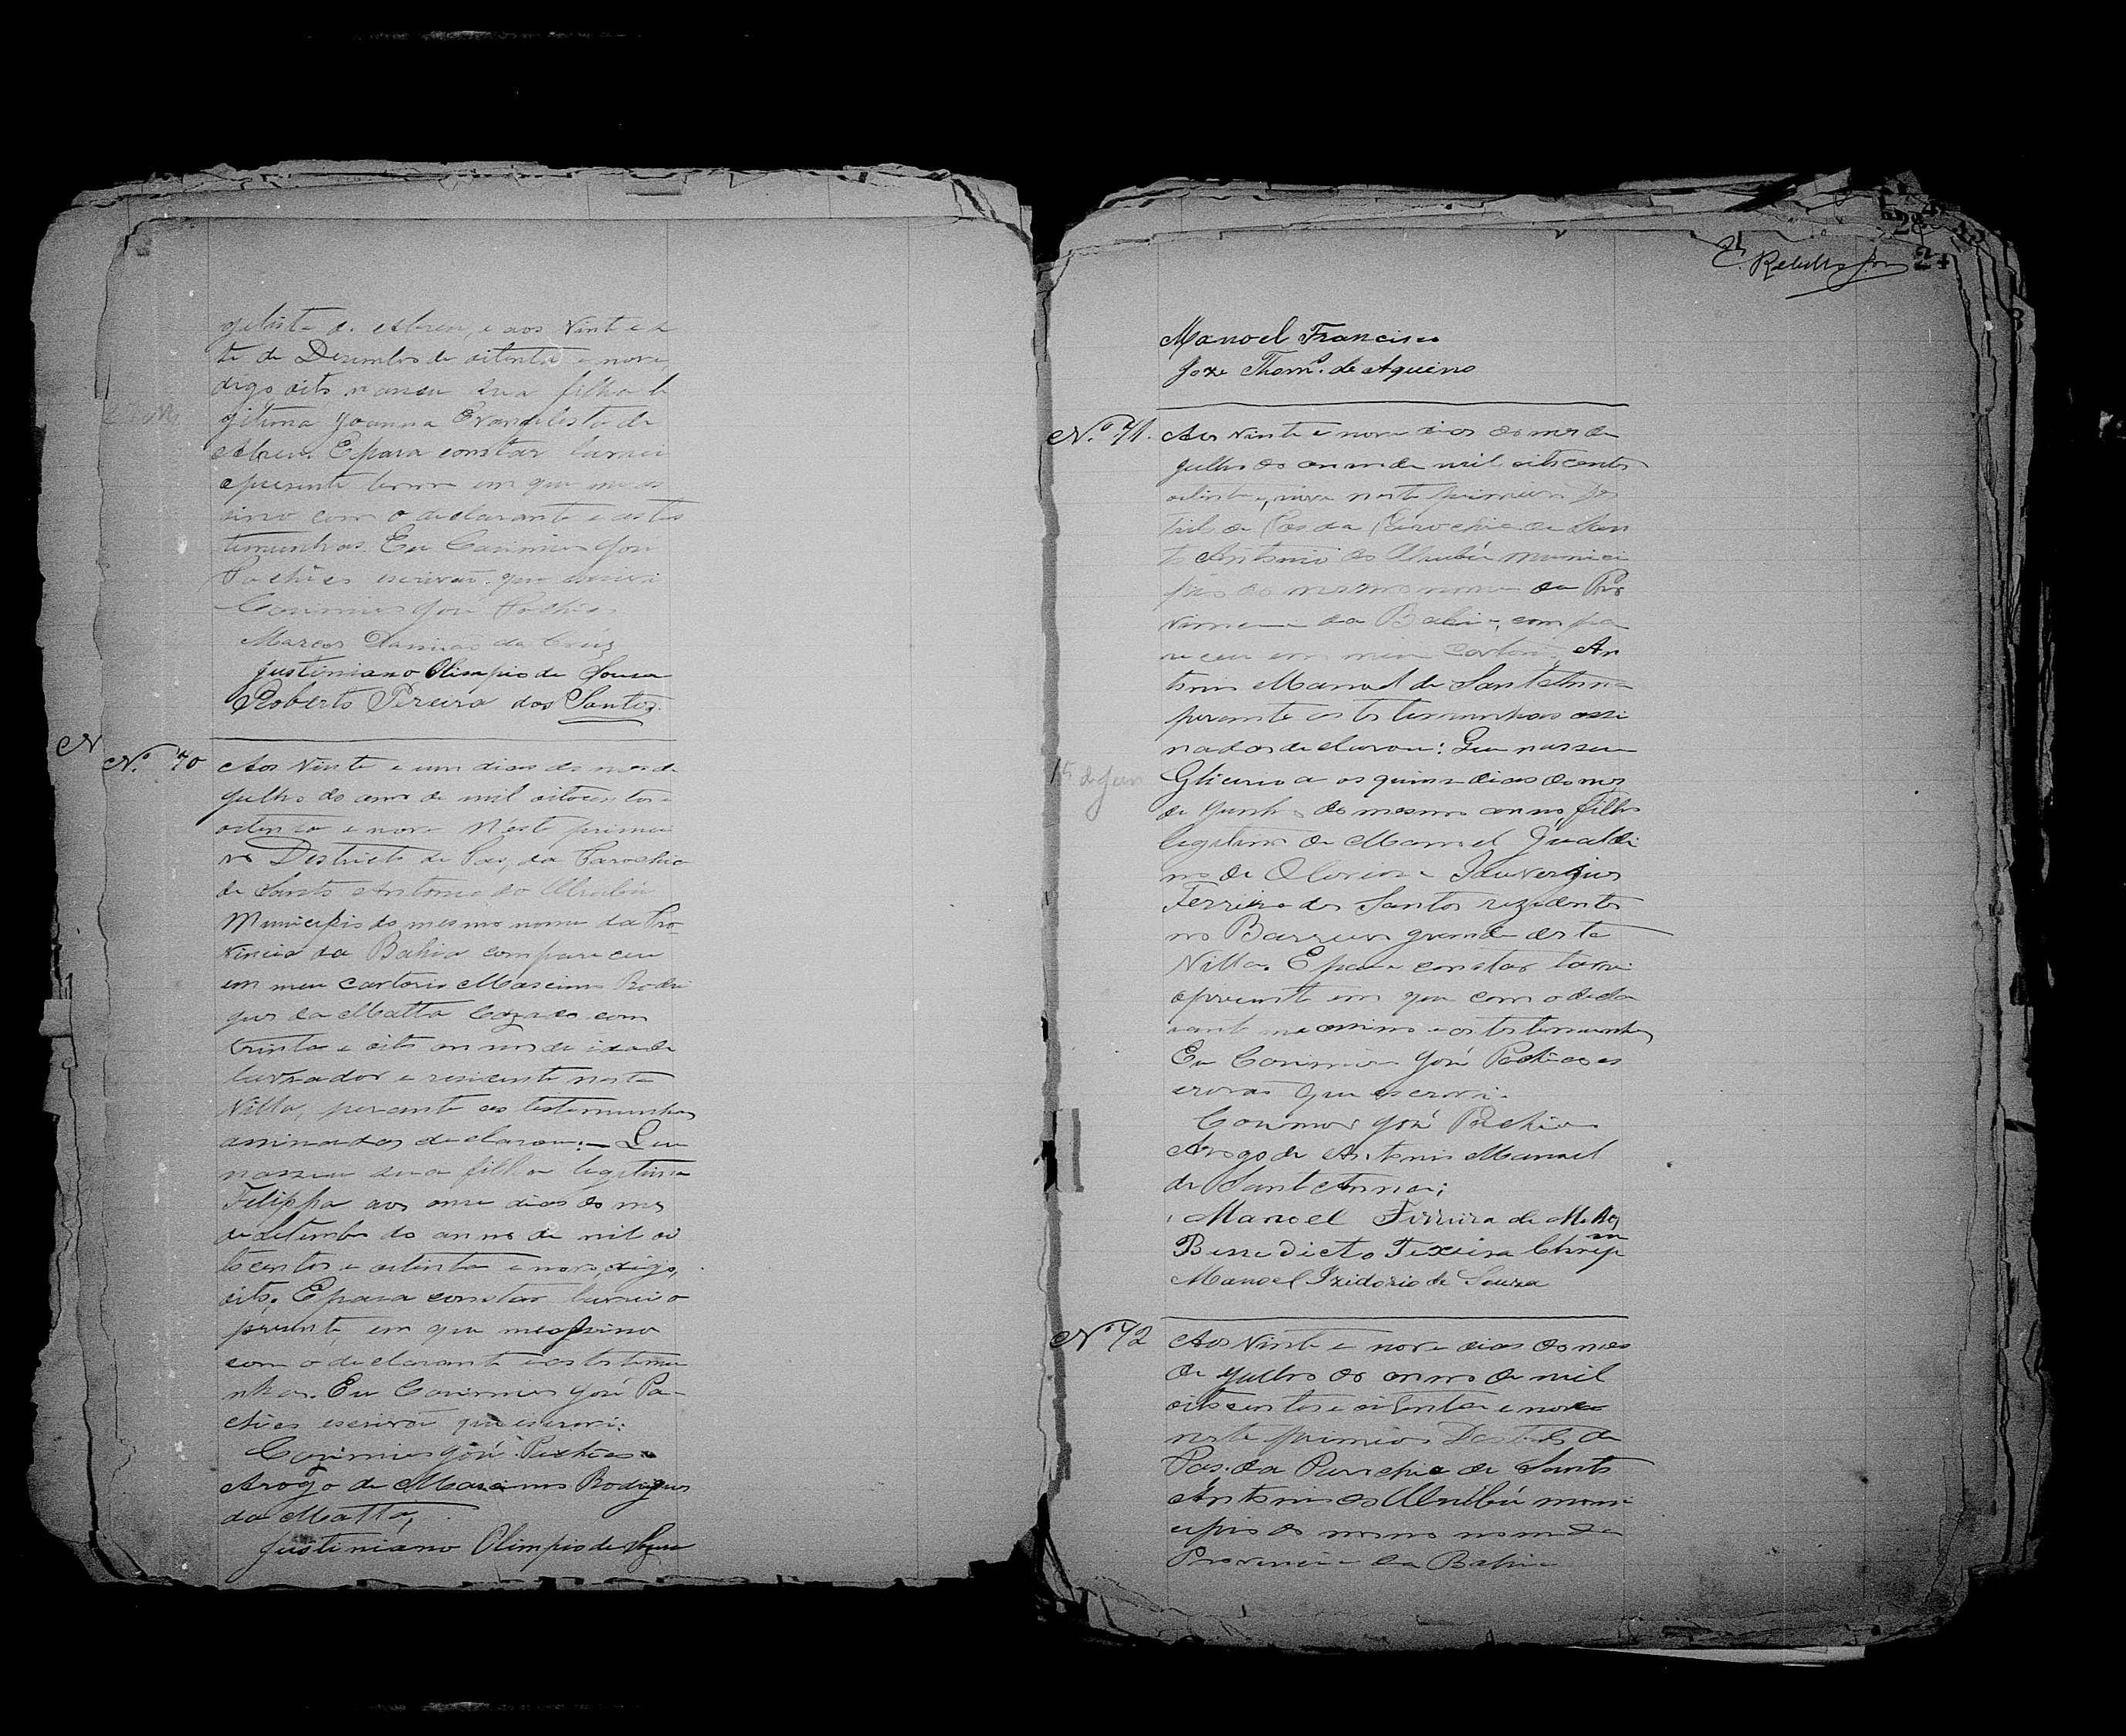 gelista d. Abreu, e aos Vinte e se
te de Desembro de oitenta e nove,
digo oito nasceu sua filha le
gitima Joanna Evangelista de
Abreu. E para constar lavrei
o presente termo em que me as
sino com o declarante e as tes
temunhas. Eu Casimiro José
Pachêco escrivão que escrevi
Casimiro José Pachêco
Marcos Damião da Cruz
Justiniano Olimpio de Souza
Roberto Pereira dos Santos.
N
N.º 70
Aos Vinte e um dias do mes de
Julho do anno de mil oitocentos e
oitenta e nove N'este primei
ro Destricto de Pas, da Parochia
de Santo Antonio do Urubú
Municipio do mesmo nome da Pro
vincia da Bahia compareceu
em meu cartorio Maximo Rodri
gues da Matta Cazado com
trinta e oito annos de idade
lavrador e residente nesta
Villa, perante as testemunhas
assinadas declarou:- Que
nasceu sua filha legitima
Felippa aos onse dias do mes
de Setembro do anno de mil oi
tocentos e oitenta e nove, digo,
oito. E para constar lavrei o
presente em que me assino
com o declarante e as testemu
nhas. Eu Casimiro José Pa-
chêco escrivão que escrevi.
Casimiro José Pachêco
Arogo de Maximo Rodrigues
da Matta,
Justiniano Olimpio de Souza
24
Manoel Francisco
Joze Thomº. de Aquino
N.º 71.
Aos Vinte e nove dias do mes de
Julho do anno de mil oitocentos
oitenta e, nove neste primeiro Des
trito de Pas da Parochia de San
to Antonio do Urubú munici
pio do mesmo nome da Pro
vincia da Bahia, compa
receu em meu Cartorio An
tonio Manoel de Sant'Anna
perante as testemunhas assi
nadas declarou: Que nasceu
15 de Jun
Gliceria a os quinse dias do mes
de Junho do mesmo anno, filha
legitima de Manoel Gualdi
no de Oliveira e
Ferreira dos Santos rezidentes
no Barreiro grande desta
Villa. E para constar lavrei
o presente em que com o decla
rante me assino e as testemunhas
Eu Casimiro José Pachêco es
crivão que escrevi.
Casimiro José Pachêco
Arogo de Antonio Manoel
de Sant'Anna;
Manoel Ferreira de
Benedicto Texeira
Manoel Izidorio de Souza
Nº 72
Aos Vinte e nove dias do mes
de Julho do anno de mil
oitocentos e oitenta e nove
neste primeiro Destricto de
Pas. da Parochia de Santo
Antonio do Urubú muni
cipio do mesmo nome da
Provincia da Bahia